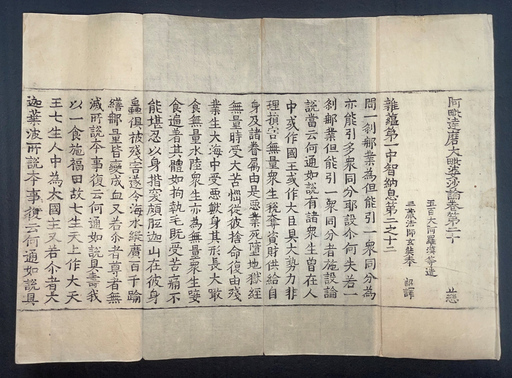 阿毗達磨大毗婆沙論卷第二十
五百大阿羅漢等造
三藏法師玄奘奉 詔譯
雜蘊第一中智納息第二之十二
問一剎那業為但能引一眾同分為
亦能引多眾同分耶設尒何失若一
剎那業但能引一眾同分者施設論
說當云何通如說有諸眾生曾在人
中或作國王或作大臣具大勢力非
理損害無量眾生稅奪資財供給自
身及諸眷屬由是惡業死墮地獄經
無量時受大苦惱從彼捨命復由殘
業生大海中受惡獸身其形長大噉
食無量水陸眾生亦為無量眾生唼
食遍著其體如拘執毛既受苦痛不
能堪忍以身揩突頗胝迦山在彼身
蟲俱被殘害遂令海水縱廣百千踰
繕那量皆變成血又若尒者尊者無
滅所說本事復云何通如說具壽我
以一食施福田故七生天上作大天
王七生人中為大國主又若尒者大
迦葉波所說本事復云何通如說具